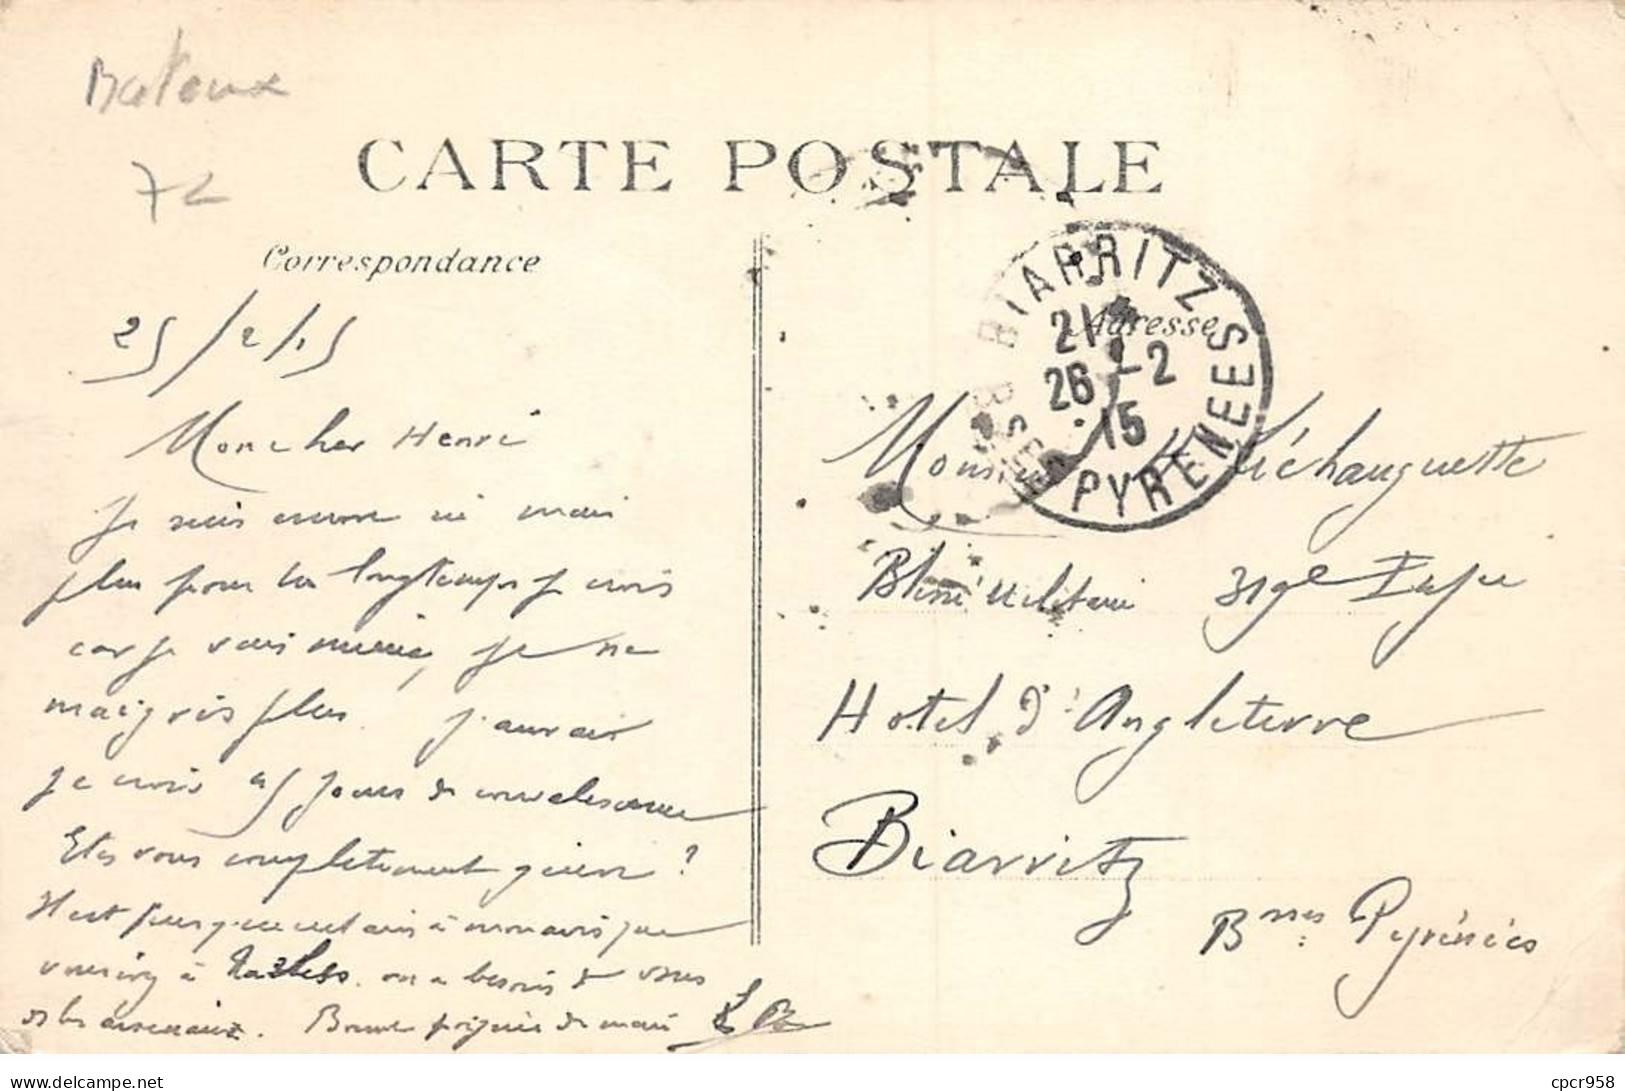 Bateaux
72
CARTE POSTALE
Correspondance
25/2/15
Mon cher Henri
Je suis encore ici mais
plus pour bien longtemps je crois
car je vais mieux, je ne
maigris plus. J'aurai
je crois 45 jours de convalescence
Etes vous complètement guéri ?
Il est presque certain à mon avis que
vous irez à on a besoin de vous
ds les arsenaux. Bonne poignée de main
BIARRITZ
21
26 -2
15
BSES PYRENEES
Adresse
Monsieur Léchauguette
Blessé Militaire 319e Infie
Hotel d'Angleterre
Biarritz
Bsses Pyrénées
cpcr958